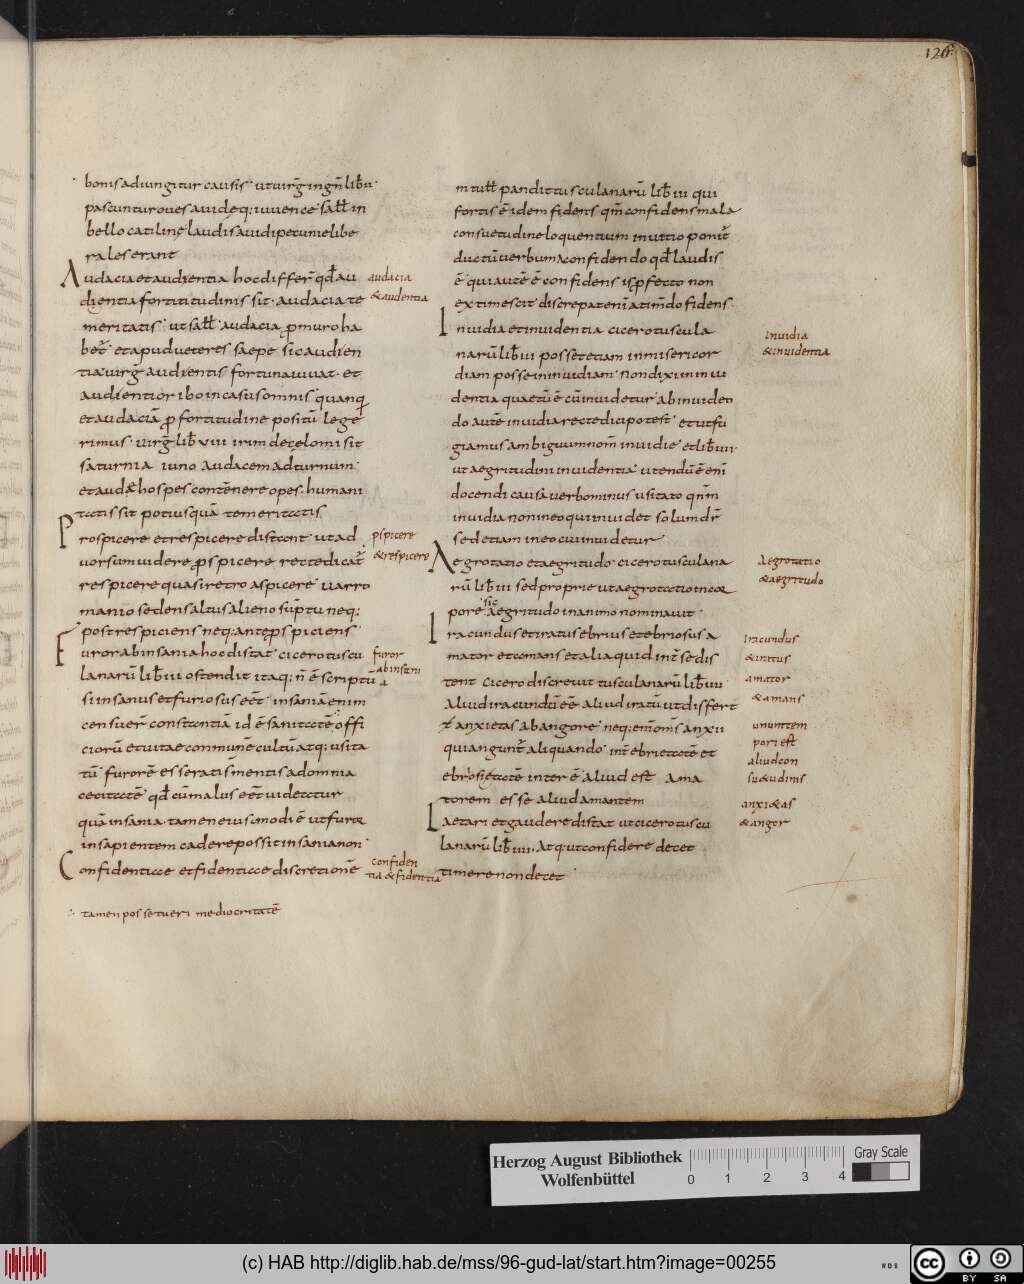 126r
bonis adiungitur causis · ut uirḡ in gn̄ lib̄ u·
pascuntur oues auidęq; iuuence sall̄ in
bello catilinę laudis auidi pecunie libe
rales erant
Audacia et audientia hoc differt̄ qd̄ au
dientia fortitudinis sit · audacia te
meritatis · ut sall̄ audacia p muro ha
bet̄ · et apud ueteres saepe sic audien
tia uirḡ audientis fortuna iuuat · et
audientior ibo in casus omnis quamq;
et audaciā p fortitudine positū lege
rimus · uirḡ lib̄ viii irim de cęlo misit
saturnia iuno audacem ad turnum ·
et audę hospes contēnere opes · humani
tatis sit potius quā temeritatis
Prospicere et respicere distant ut ad
uorsum uidere prospicere recte dicat̄
respicere quasi retro aspicere uarro
manio sedens altus alieno sūptu neq;
post respiciens neq; ante prospiciens ·
Furor ab insania hoc distat cicero tuscu
lanarū lib̄ iii ostendit itaq; n̄ ē scriptū
si insanus et furiosus eēt insaniā enim
censuer̄ constantiā id ē sanitatē offi
ciorū et uitae commune cultū atq; usita
tū furorē esse ratis mentis ad omnia
cecitatē qd̄ cū malus eēt uidetatur
quā insania · tamen eius modi ē ut furor
in sapientem cadere possit insania non ·
Confidentiae et fidentiae discretionē
tamen posse tueri mediocritatē
audacia
& audentia
pspicere
& respicere
furor
ab insani
a
confiden
tia & fidentia
m tull̄ pandit tusculanarū lib̄ iii qui
fortis ē idem fidens qm̄ confidens mala
consuetudine loquentium in uitio ponit̄
ductū uerbum a confidendo qd̄ laudis
ē qui autē ē confidens is pfecto non
extimescit discrepat enī a timdo fidens ·
Inuidia et inuidentia cicero tuscula
narū lib̄ iii posset etiam in misericor
diam posse in inuidiam non dixi in inui
dentia quae tū ē cū inuidetur ab inuideo
do autē inuidia recte dici potest et ut fu
giamus ambiguum nom̄ inuidie et lib̄ iiii·
ut aegritudini inuidentia utendū ē enī
docendi causa uerbo minus usitato qm̄
inuidia non in eo qui inuidet solum dr̄
sed etiam in eo cui inuidetur
Aegrotatio et aegritudo · cicero tusculana
rū lib̄ iii sed proprie ut aegrotatio in cor
pore sic aegritudo in animo nom̄inauit ·
Iracundus et iratus ebrius et ebriosus a
mator et amans et aliaquid int̄ se dis
tent cicero discreuit tusculanarū lib̄ iiii
Aliud iracundū eē aliud iratū ut differt
anxietas ab angore neq; em̄ om̄s anxii
qui angunt̄ aliquando · int̄ ebrietatē et
ebriosietatē inter ē aliud est ama
torem esse aliud amantem
Laetari et gaudere distat ut cicero tuscu
lanarū lib̄ iiii · Atq; ut confidere decet
timere non decet ·
inuidia
& inuidentia
Aegrotatio
& aegritudo
Iracundus
& iratus
amator
& amans
anxi&as
& angor
Herzog August Bibliothek
Wolfenbüttel
0 1 2 3 4
Gray Scale
(c) HAB http://diglib.hab.de/mss/96-gud-lat/start.htm?image=00255
WDB
cc BY SA